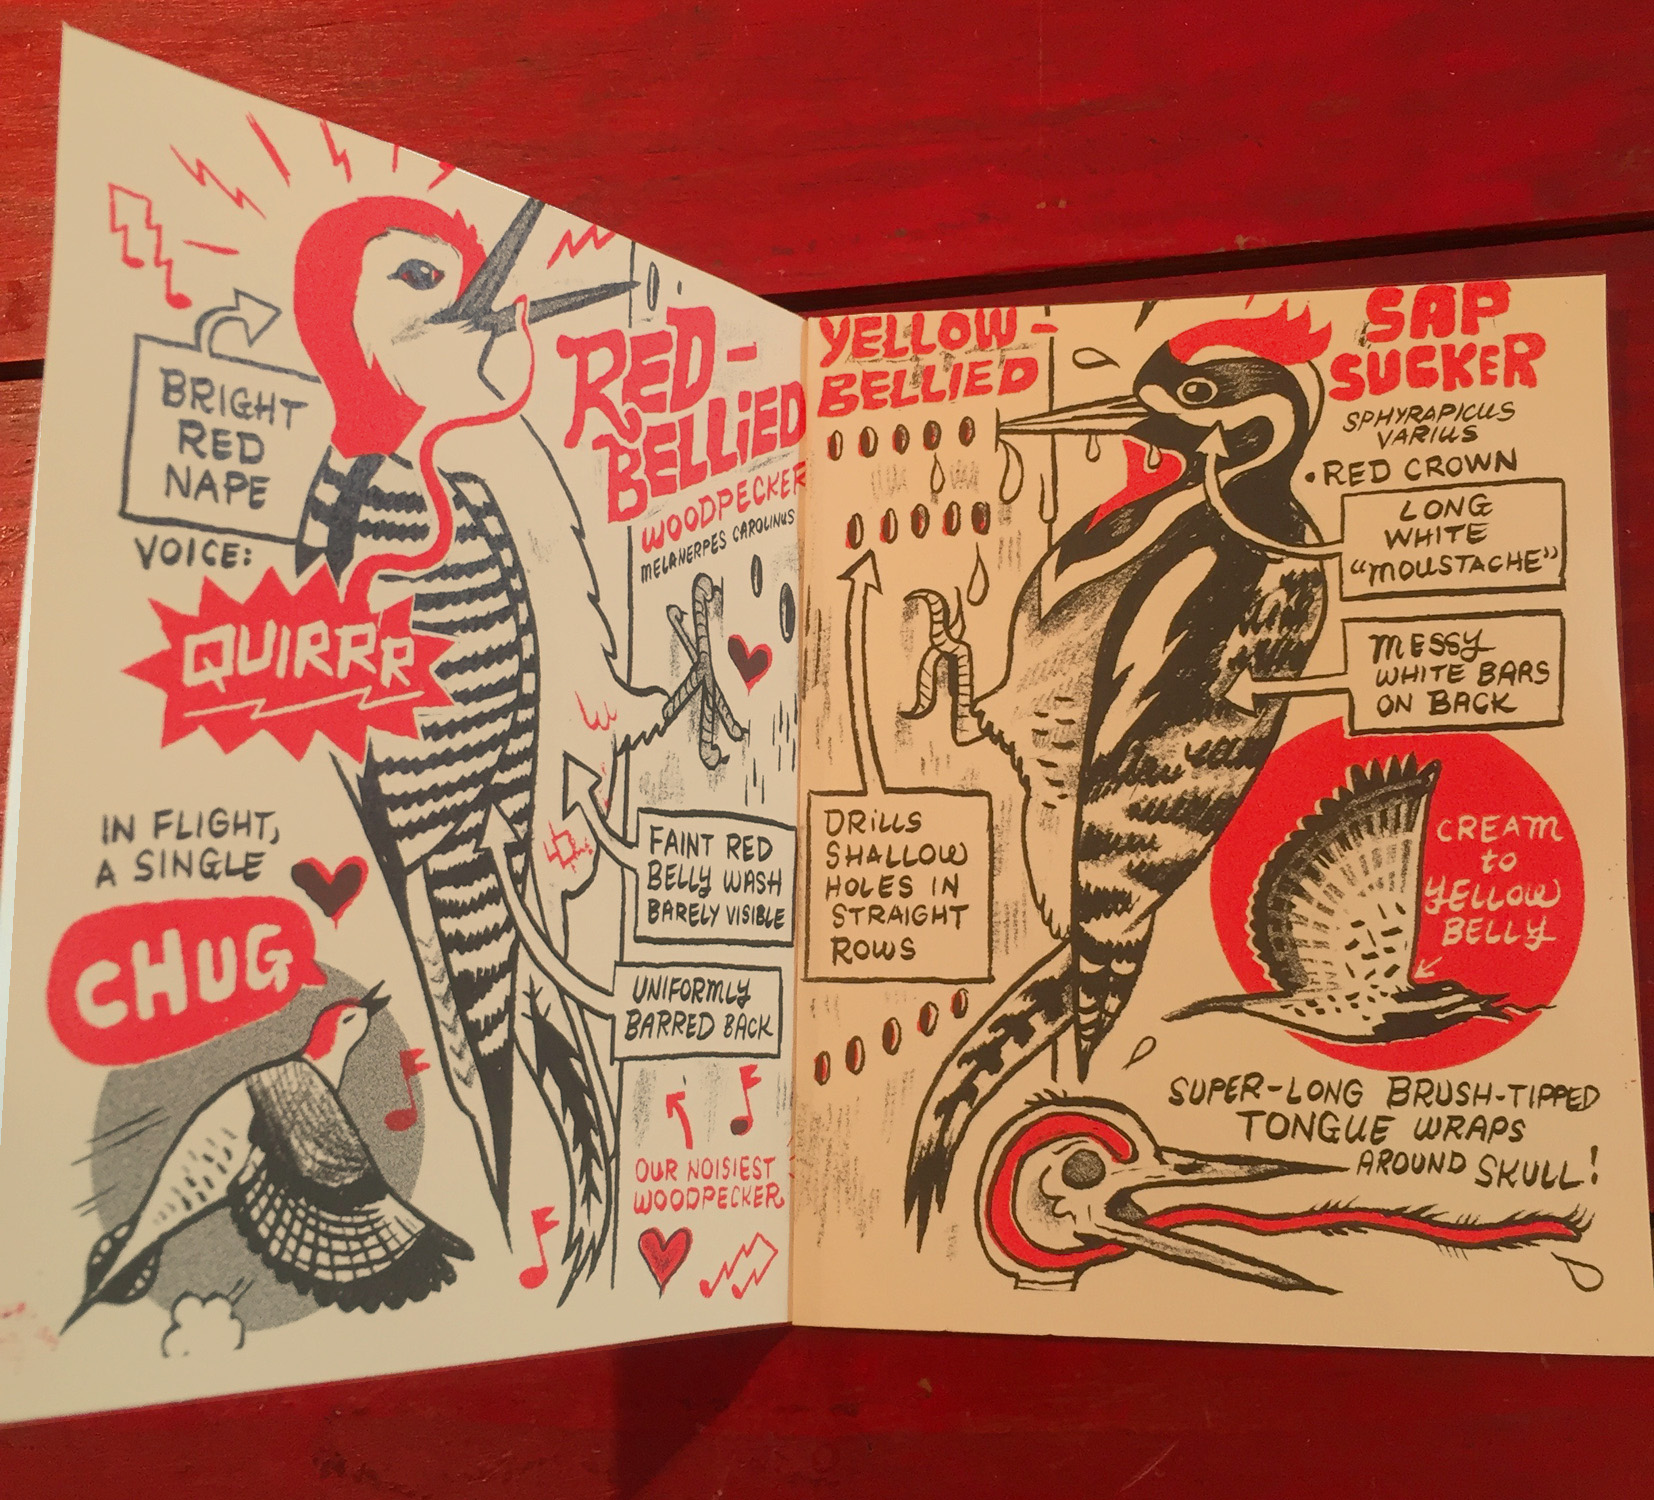 RED-
BELLIED
WOODPECKER
MELANERPES CAROLINUS
BRIGHT
RED
NAPE
VOICE:
QUIRRR
IN FLIGHT,
A SINGLE
CHUG
FAINT RED
BELLY WASH
BARELY VISIBLE
UNIFORMLY
BARRED BACK
OUR NOISIEST
WOODPECKER
YELLOW-
BELLIED
SAP
SUCKER
SPHYRAPICUS
VARIUS
•RED CROWN
LONG
WHITE
"MOUSTACHE"
MESSY
WHITE BARS
ON BACK
DRILLS
SHALLOW
HOLES IN
STRAIGHT
ROWS
CREAM
to
YELLOW
BELLY
SUPER-LONG BRUSH-TIPPED
TONGUE WRAPS
AROUND SKULL!